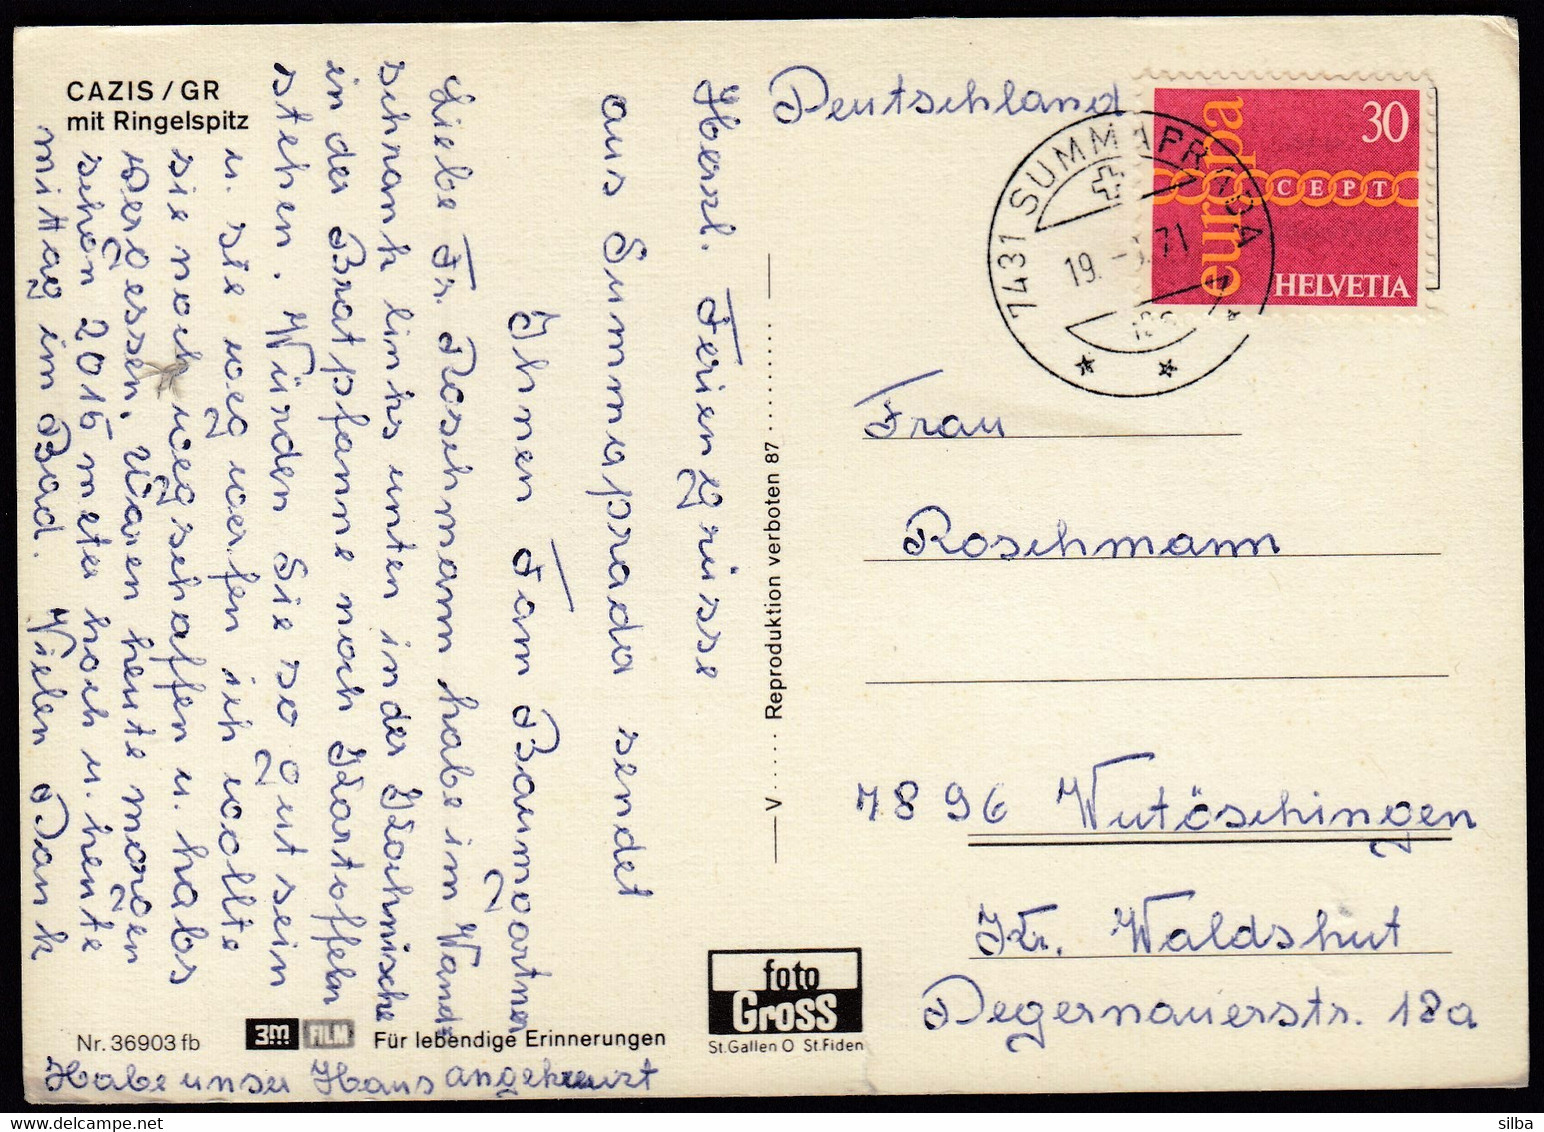 CAZIS / GR
mit Ringelspitz
Herzl. Feriengrüsse
aus Summaprada sendet
Ihnen Fam Baumgartner
Liebe Fr. Roschmann habe im Wand-
schrank links unten in der Kochnische
in der Bratpfanne noch Kartoffeln
stehen. Würden Sie so gut sein
u. sie weg werfen ich wollte
sie noch wegschaffen u. habs
vergessen. Waren heute morgen
schon 2015 meter hoch u. heute
mittag im Bad. Vielen Dank
Habe unser Haus angekreuzt
Nr. 36903 fb
3M FILM Für lebendige Erinnerungen
V Reproduktion verboten 87
foto
Gross
St.Gallen O St.Fiden
Deutschland
7431 SUMMAPRADA
19. 71
europa
30
CEPT
HELVETIA
Frau
Roschmann
7896 Wutöschingen
Kr. Waldshut
Degernauerstr. 18a
silba